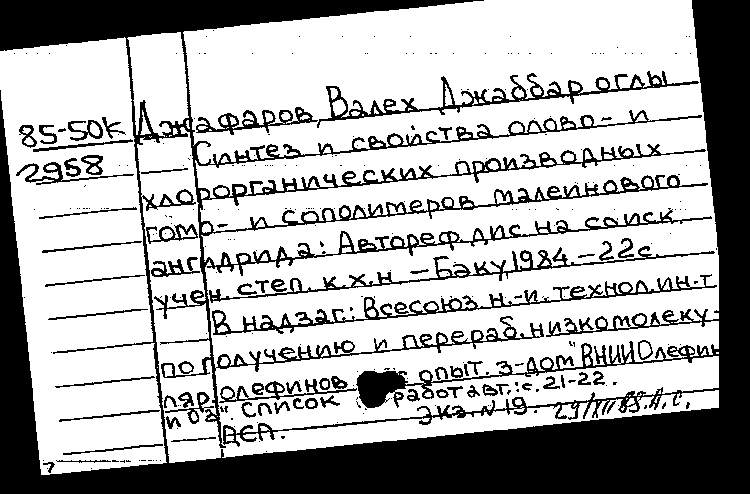 85-50К Джафаров, Валех Джаббар оглы
2958 Синтез и свойства олово- и
хлорорганических производных
гомо- и сополимеров малеинового
ангидрида: Автореф. дис. на соиск.
учен. степ. к.х.н. – Баку, 1984. – 22с.
В надзаг.: Всесоюз. н.-и. технол. ин-т
по получению и перераб. низкомолеку-
ляр. олефинов с опыт. з-дом "ВНИИОлефин
и ОЗ". Список работ авт.: с. 21-22.
ДСП. Экз. N 19. 29/XII 85. А.С.